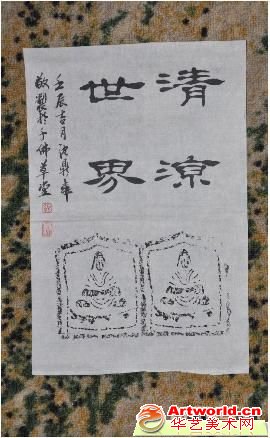 清凉
世界
壬辰吉月沈鼎雍
敬制於千佛草堂
Artworld.cn
华艺美术网